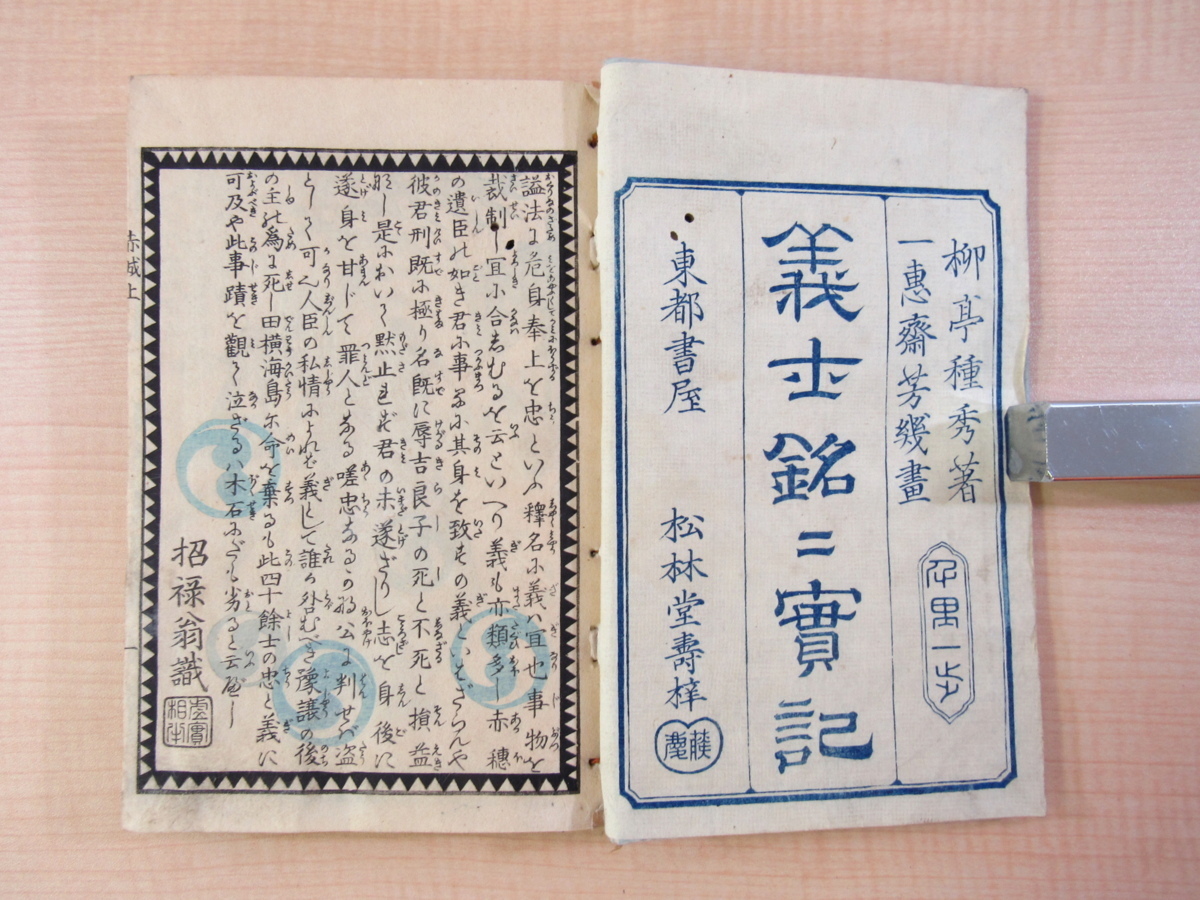 柳亭種秀著
一惠齋芳幾畫
義士銘二實記
東都書屋
松林堂壽梓
藤慶
謚法に危身奉上を忠といふ釋名に義ハ宜也事物を
裁制し宜に合しむるを云といへり義も亦類多し赤穗
の遺臣の如き君に事ふに其身を致すの義といはざらんや
彼君刑既に極り名既に辱吉良子の死と不死と損益
なし是において默止せバ君の未遂ざりし志を身後に
遂身を甘じて罪人となる嗟忠なるかな公に判せバ盜
として可人臣の私情によれバ義として誰か外むべき豫讓の後
の主の爲に死し田横海島に命を棄るも此四十餘士の忠と義に
可及や此事蹟を觀て泣ざるハ木石にだも劣ると云べし
招禄翁識
虚實相半
赤城上
一